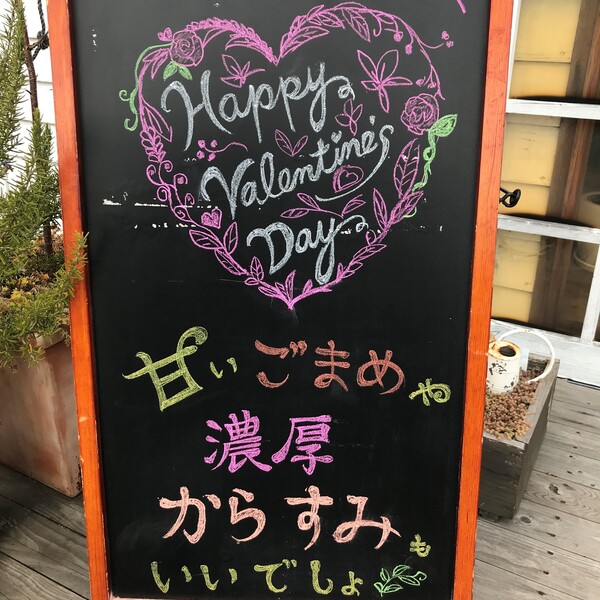 Happy
Valentine's
Day
甘い ごまめ や
濃厚
からすみも
いいでしょ